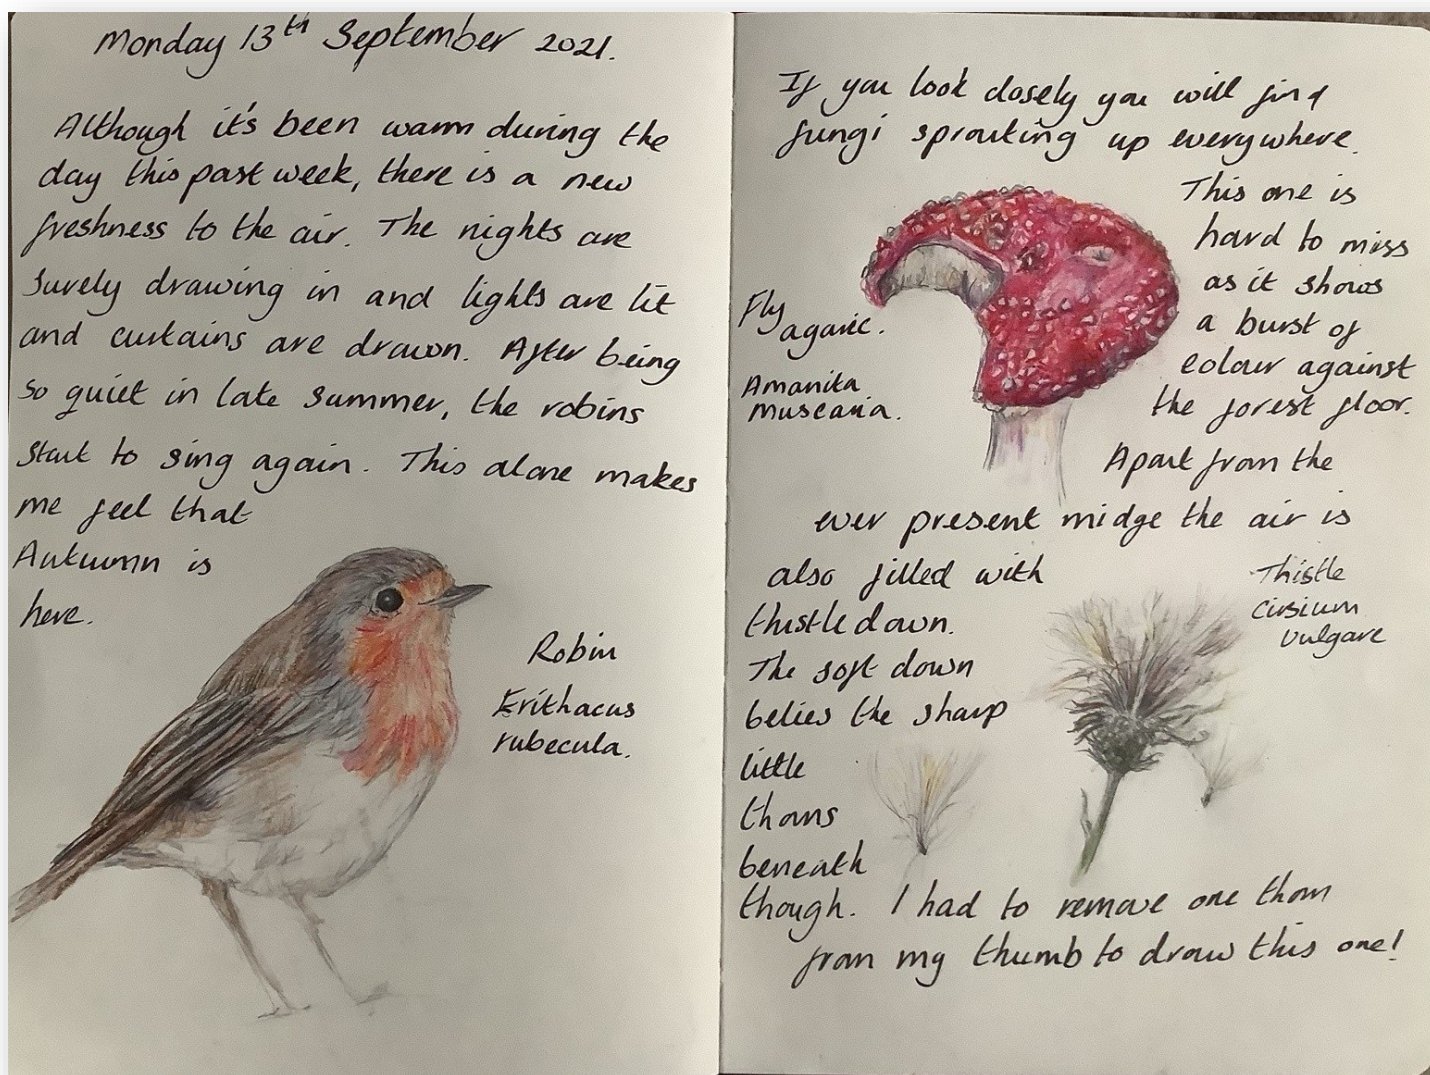 Monday 13th September 2021.
Although it's been warm during the
day this past week, there is a new
freshness to the air. The nights are
surely drawing in and lights are lit
and curtains are drawn. After being
so quiet in late summer, the robins
start to sing again. This alone makes
me feel that
Autumn is
here.
Robin
Erithacus
rubecula.
If you look closely you will find
fungi sprouting up everywhere.
This one is
hard to miss
as it shows
a burst of
colour against
the forest floor.
Fly
agaric.
Amanita
muscaria.
Apart from the
ever present midge the air is
also filled with
thistledown.
The soft down
belies the sharp
little
thorns
beneath
though. I had to remove one thorn
from my thumb to draw this one!
Thistle
Cirsium
vulgare